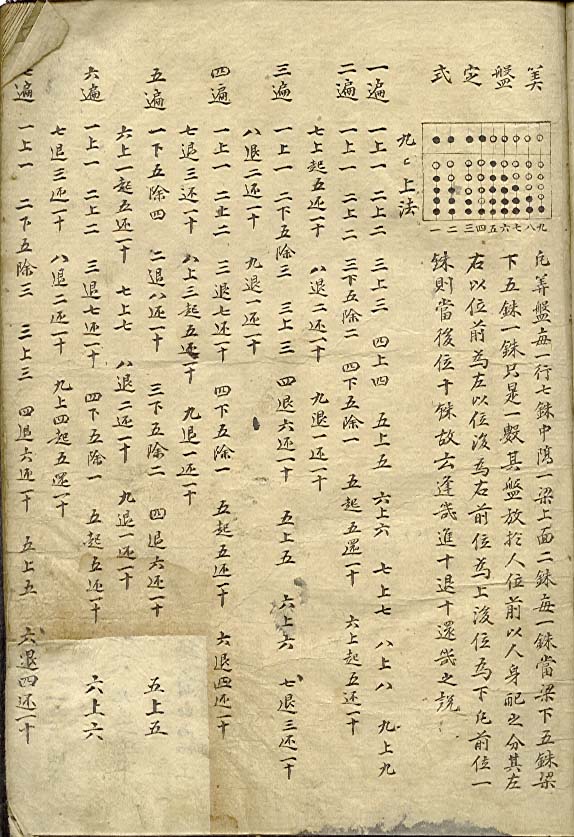 筭盤定式
一二三四五六七八九
凢筭盤每一行七銖中隔一梁上面二銖每一銖當梁下五銖梁
下五銖一銖只是一數其盤放於人位前以人身配之分其左
右以位前為左以位後為右前位為上後位為下凢前位一
銖則當後位十銖故云逢幾進十退十還幾之説
九〻上法
一遍 一上一 二上二 三上三 四上四 五上五 六上六 七上七 八上八 九上九
二遍 一上一 二上二 三下五除二 四下五除一 五起五還一十 六上起五还一十
七上起五还一十 八退二还一十 九退一还一十
三遍 一上一 二下五除三 三上三 四退六还一十 五上五 六上六 七退三还一十
八退二还一十 九退一还一十
四遍 一上一 二上二 三退七还一十 四下五除一 五起五还一十 六退四还一十
七退三还一十 八上三起五还一十 九退一还一十
五遍 一下五除四 二退八还一十 三下五除二 四退六还一十 五上五
六上一起五还一十 七上七 八退二还一十 九退一还一十
六遍 一上一 二上二 三退七还一十 四下五除一 五起五还一十 六上六
七退三还一十 八退二还一十 九上四起五还一十
七遍 一上一 二下五除三 三上三 四退六还一十 五上五 六退四还一十